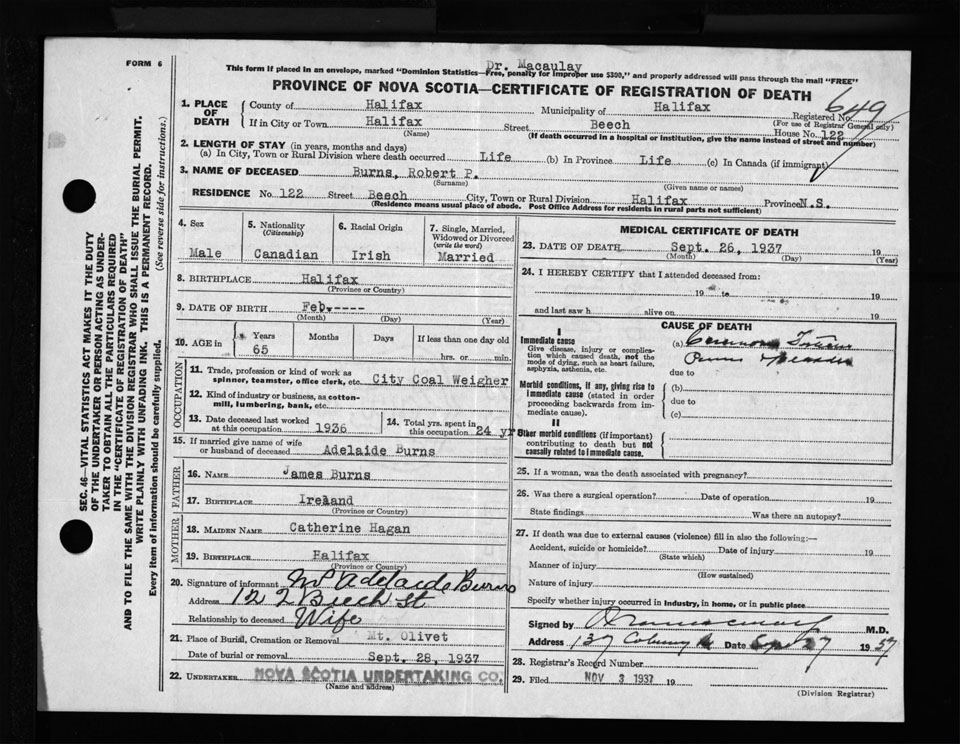 FORM 6
Dr. Macaulay
This form if placed in an envelope, marked "Dominion Statistics—Free, penalty for improper use $300," and properly addressed will pass through the mail "FREE"
PROVINCE OF NOVA SCOTIA—CERTIFICATE OF REGISTRATION OF DEATH
649
1. PLACE OF DEATH
County of Halifax Municipality of Halifax Registered No.
(For use of Registrar General only)
If in City or Town Halifax Street Beech House No. 122
(Name) (If death occurred in a hospital or institution, give the name instead of street and number)
2. LENGTH OF STAY (in years, months and days)
(a) In City, Town or Rural Division where death occurred Life (b) In Province Life (c) In Canada (if immigrant)
3. NAME OF DECEASED Burns, Robert P.
(Surname) (Given name or names)
RESIDENCE No. 122 Street Beech City, Town or Rural Division Halifax Province N.S.
(Residence means usual place of abode. Post Office Address for residents in rural parts not sufficient)
4. Sex Male
5. Nationality (Citizenship) Canadian
6. Racial Origin Irish
7. Single, Married, Widowed or Divorced (write the word) Married
8. BIRTHPLACE Halifax
(Province or Country)
9. DATE OF BIRTH Feb.----
(Month) (Day) (Year)
10. AGE in Years 65 Months Days If less than one day old
hrs. or min.
OCCUPATION
11. Trade, profession or kind of work as spinner, teamster, office clerk, etc. City Coal Weigher
12. Kind of industry or business, as cotton-mill, lumbering, bank, etc.
13. Date deceased last worked at this occupation 1936
14. Total yrs. spent in this occupation 24 yrs
15. If married give name of wife or husband of deceased Adelaide Burns
FATHER
16. NAME James Burns
17. BIRTHPLACE Ireland
(Province or Country)
MOTHER
18. MAIDEN NAME Catherine Hagan
19. BIRTHPLACE Halifax
(Province or Country)
20. Signature of informant Adelaide Burns
Address 122 Beech St
Relationship to deceased Wife
21. Place of Burial, Cremation or Removal Mt. Olivet
Date of burial or removal Sept. 28, 1937
22. UNDERTAKER NOVA SCOTIA UNDERTAKING CO.
(Name and address)
MEDICAL CERTIFICATE OF DEATH
23. DATE OF DEATH Sept. 26, 1937 19
(Month) (Day) (Year)
24. I HEREBY CERTIFY that I attended deceased from:
19 to 19
and last saw h alive on 19
CAUSE OF DEATH
I
Immediate cause (a)
Give disease, injury or complication which caused death, not the mode of dying, such as heart failure, asphyxia, asthenia, etc.
due to
Morbid conditions, if any, giving rise to immediate cause (stated in order proceeding backwards from immediate cause).
(b)
due to
(c)
II
Other morbid conditions (if important) contributing to death but not causally related to immediate cause.
25. If a woman, was the death associated with pregnancy?
26. Was there a surgical operation? Date of operation 19
State findings Was there an autopsy?
27. If death was due to external causes (violence) fill in also the following:—
Accident, suicide or homicide? Date of injury 19
(State which)
Manner of injury
(How sustained)
Nature of injury
Specify whether injury occurred in industry, in home, or in public place
Signed by M.D.
Address 137 Date 27 1937
28. Registrar's Record Number
29. Filed NOV 3 1937 19
(Division Registrar)
SEC. 46—VITAL STATISTICS ACT MAKES IT THE DUTY
OF THE UNDERTAKER OR PERSON ACTING AS UNDER-
TAKER TO OBTAIN ALL THE PARTICULARS REQUIRED
IN THE "CERTIFICATE OF REGISTRATION OF DEATH"
AND TO FILE THE SAME WITH THE DIVISION REGISTRAR WHO SHALL ISSUE THE BURIAL PERMIT.
WRITE PLAINLY WITH UNFADING INK. THIS IS A PERMANENT RECORD.
Every item of information should be carefully supplied. (See reverse side for instructions.)